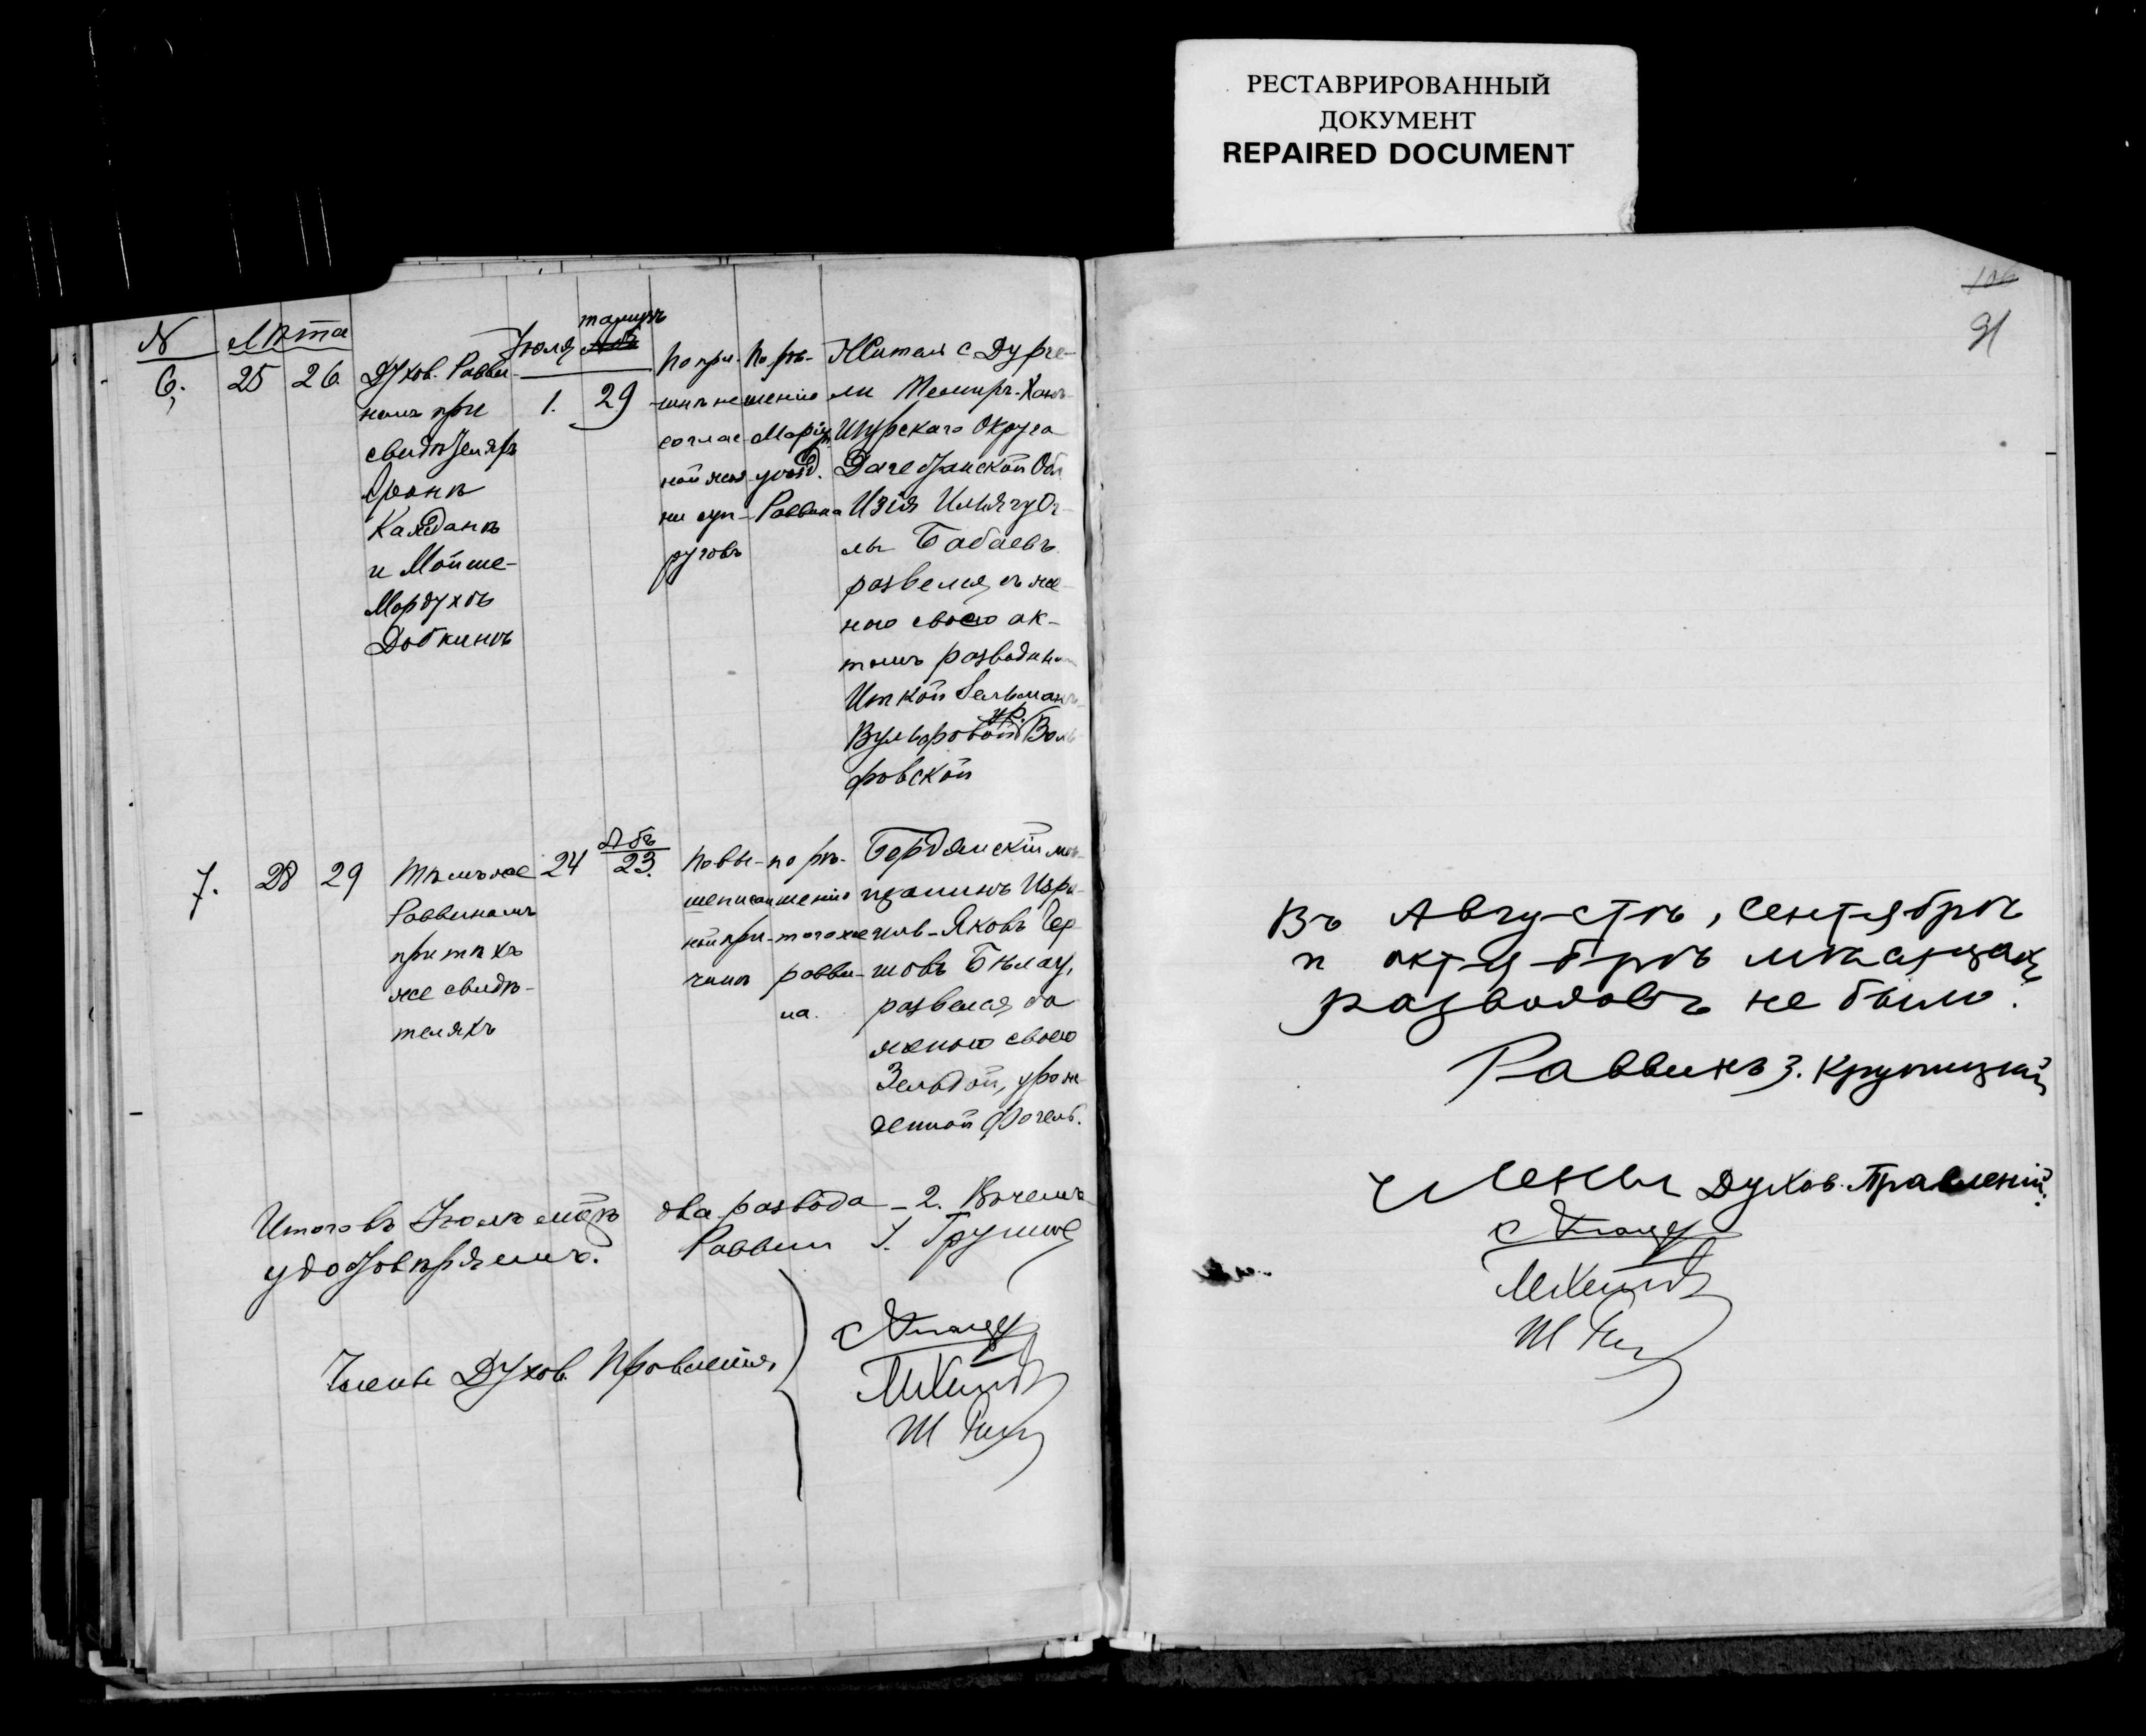 РЕСТАВРИРОВАННЫЙ
ДОКУМЕНТ
REPAIRED DOCUMENT
106
91
N
Лѣта
Іюля
тамузъ
Абъ
6.
25
26
1.
29
Духов. Равви-
номъ при
свидѣтеляхъ
Аронѣ
Кажданѣ
и Мойше-
Мордухѣ
Добкинѣ
По при-
чинѣ не
соглас-
ной жиз-
ни суп-
руговъ
По рѣ-
шенію
Маріуп.
уѣзд.
Раввина
Житель с Дурге-
ли Темиръ-Ханъ-
Шурскаго Округа
Дагестанской Обл
Изія Ильягуог-
лы Бабаевъ
развелся съ же-
ною своею ак-
томъ развода на
Иткой
Вульфовой ур. Воль-
фовской
7.
28
29
Тѣмъ же
Раввиномъ
при тѣхъ
же свидѣ-
теляхъ
24
Абъ
23.
По вы-
шеписан
ной при-
чинѣ
по рѣ-
шенію
того же
равви-
на.
Бердянскій мѣ-
щанинъ Изра-
иль-Яковъ Гер-
шовъ Бѣлау,
развелся со
женою своею
Зельдой, урож-
денной Фогель.
Итого въ Іюлѣ мѣсяцѣ два развода - 2. Въ чемъ
удостовѣряемъ. Раввин
Члены Духов. Правленія,
Въ Августѣ, Сентябрѣ
и октябрѣ мѣсяцахъ
разводовъ не было.
Раввинъ З. Крупицкій
Члены Духов. Правленій.